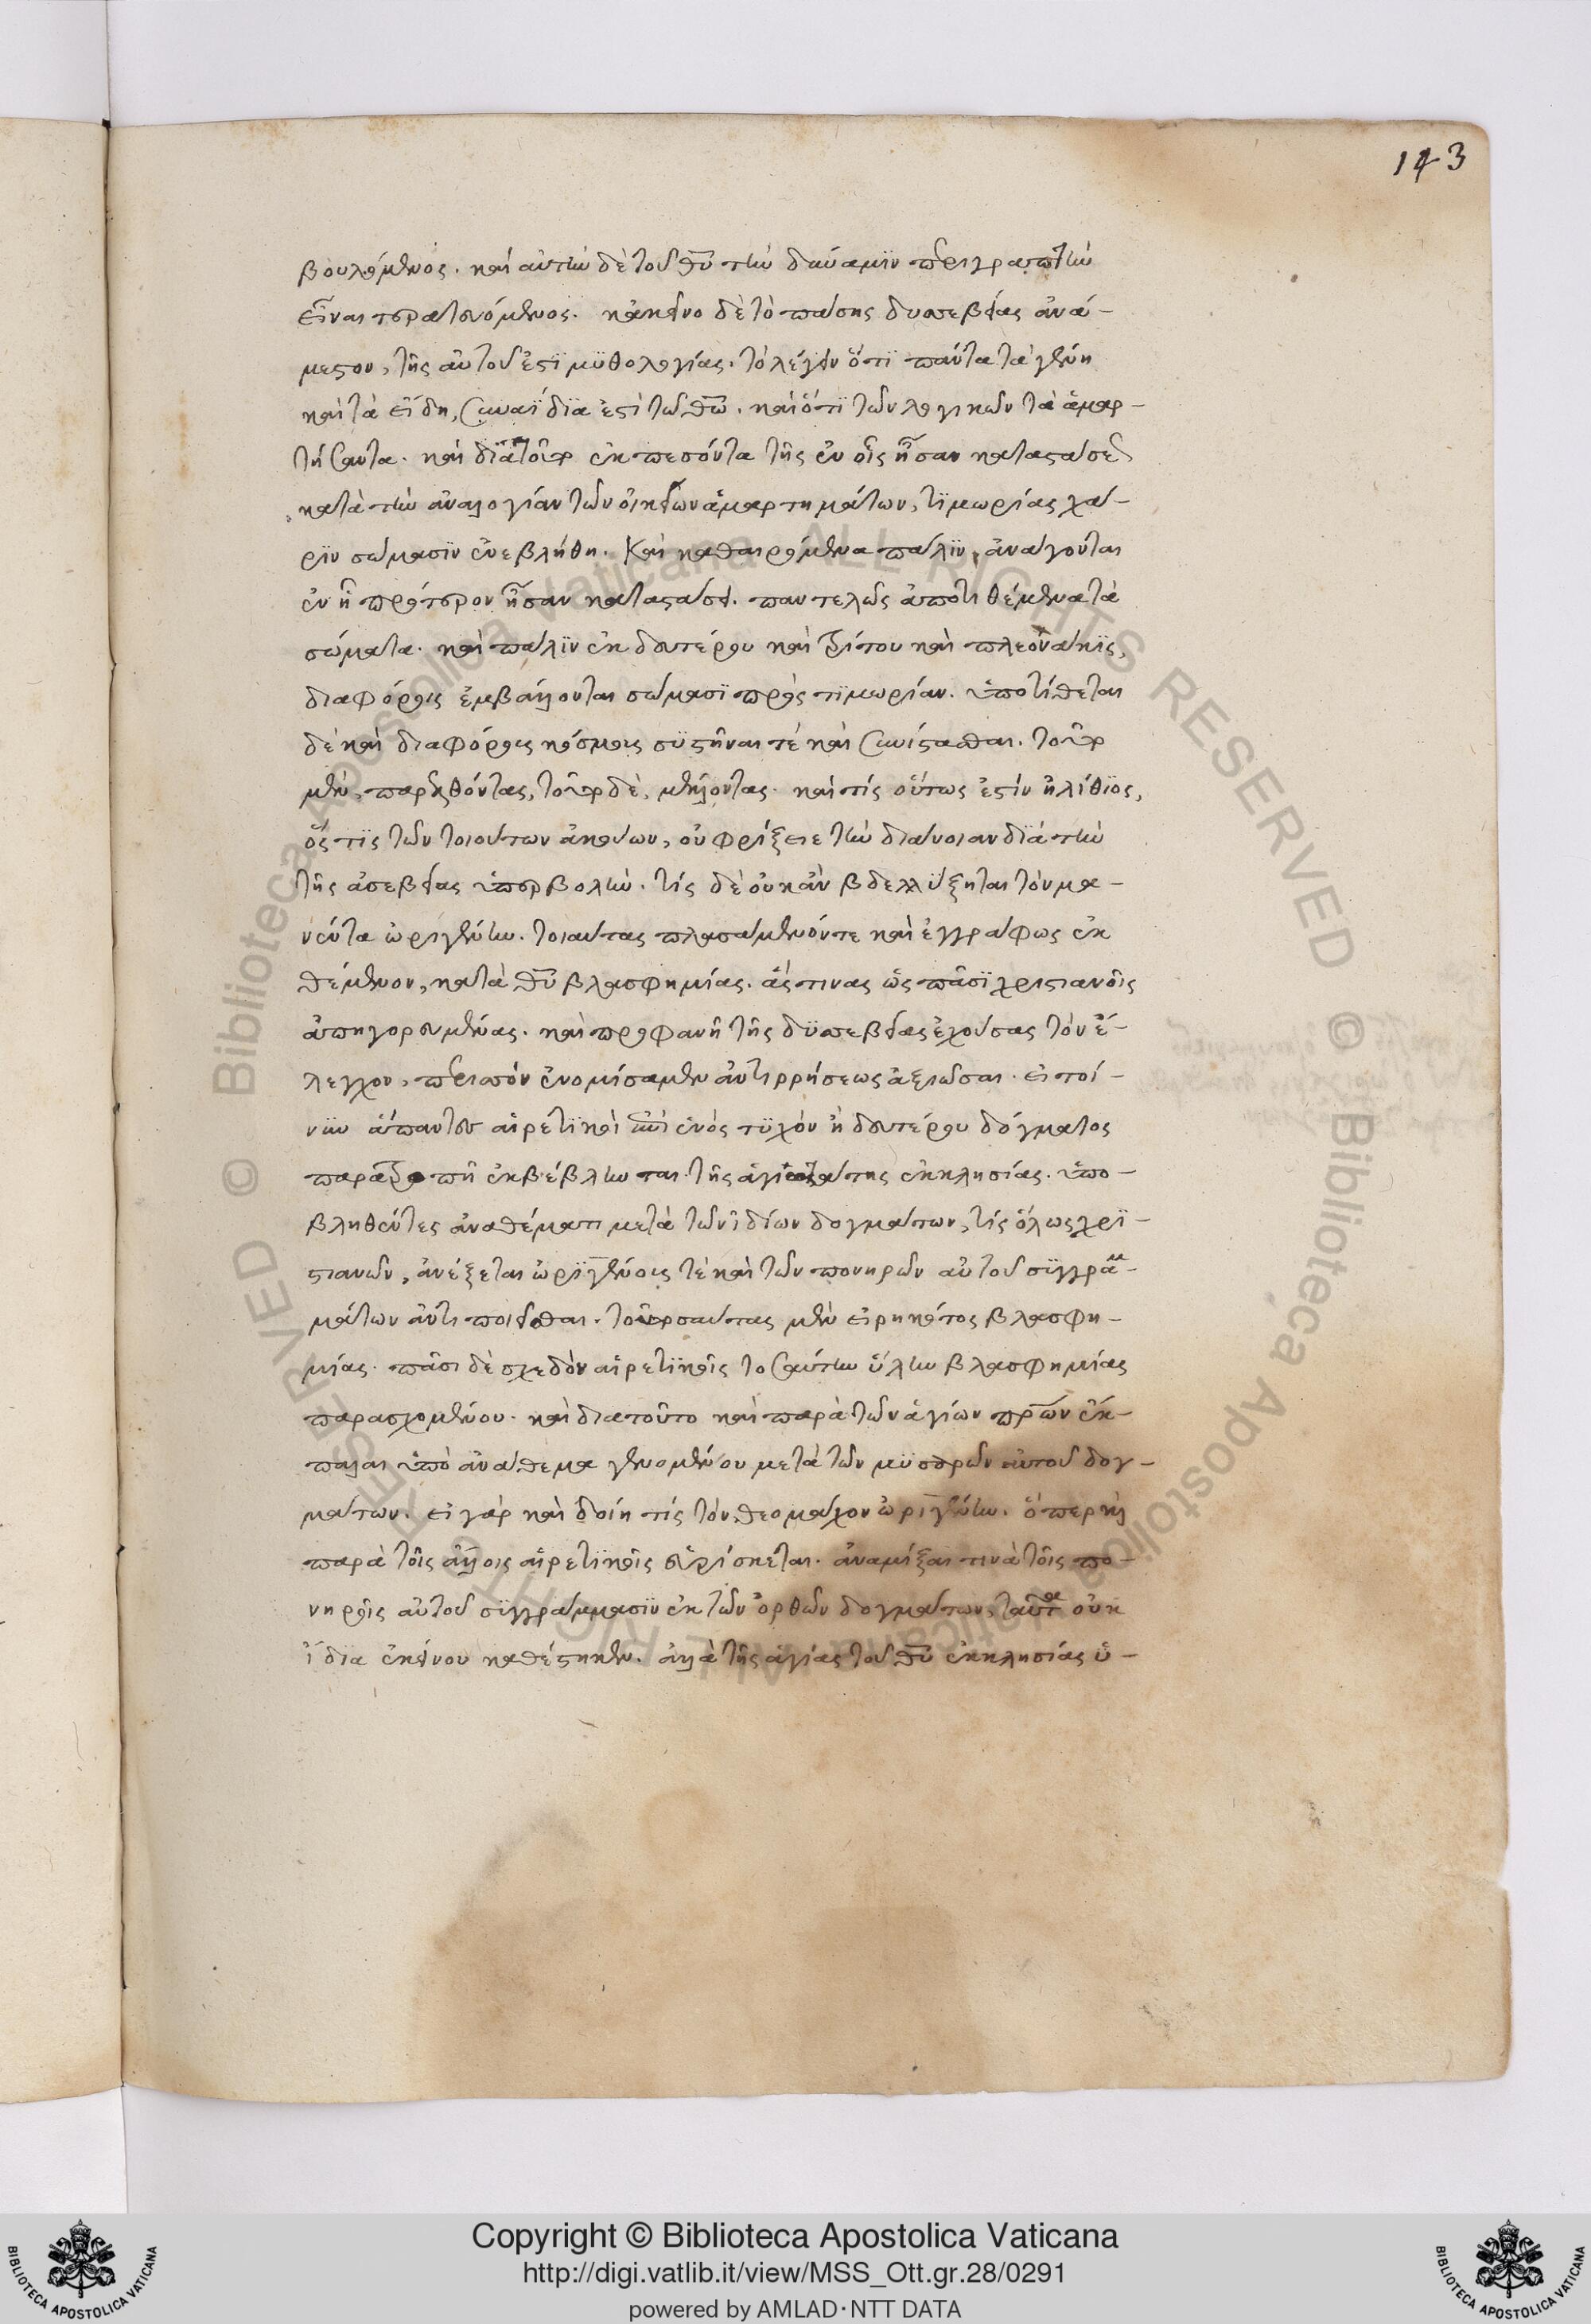 143
βουλόμενος. καὶ αὐτὴν δὲ τοῦ θῦ τὴν δύναμϊν περιγραπτὴν
εἶναι τερατευόμενος. κἀκεῖνο δὲ τὸ πάσης δυσσεβείας ἀνά-
μεστον, τῆς αὐτοῦ ἐστϊ μϋθολογίας. τὸ λέγειν ὅτϊ πάντα τὰ γένη
καὶ τὰ εἴδη, συναΐδϊα ἐστὶ τῶ θῶ. καὶ ὅτϊ τῶν λογικῶν τὰ ἁμαρ-
τήσαντα. καὶ δϊατοῦτο ἐκπεσόντα τῆς ἐν οἷς ἦσαν καταστάσεως
κατὰ τὴν ἀναλογίαν τῶν οἰκείων ἁμαρτημάτων, τϊμωρίας χά-
ρϊν σώμασϊν ἐνεβλήθη. Καὶ καθαιρόμενα πάλϊν, ἀνάγονται
ἐν ἧ πρότερον ἦσαν καταστάσει. παντελῶς ἀποτιθέμενα τὰ
σώματα. καὶ πάλϊν ἐκ δευτέρου καὶ τρίτου καὶ πλεονάκϊς,
διαφόροις ἐμβάλλονται σώμασϊ πρὸς τϊμωρίαν. ὑποτίθεται
δὲ καὶ διαφόροις κόσμοις σϋστῆναι τὲ καὶ συνίστασθαι. τοὺς
μὲν, παρελθόντας, τοὺς δὲ, μέλλοντας. καὶ τίς οὕτως ἐστίν ἠλίθϊος,
ὅς τϊς τῶν τοιούτων ἀκούων, οὐ φρίξειε τὴν διάνοιαν δϊὰ τὴν
τῆς ἀσεβείας ὑπερβολὴν. τίς δὲ οὐκ ἂν βδελλύξηται τὸν μα-
νέντα ὠριγένην. τοιαύτας πλασάμενόν τε καὶ ἐγγράφως ἐκ
θέμενον, κατὰ θῦ βλασφημίας. ἅς τινας ὡς πᾶσϊ χριστιανοῖς
ἀπηγορευμένας. καὶ προφανῆ τῆς δϋσσεβείας ἐχούσας τὸν ἔ-
λεγχον, περιττὸν ἐνομίσαμεν ἀντιρρήσεως ἀξιῶσαι. εἰ τοί-
νϋν ἅπαντες αἱρετϊκοὶ ὑπὲρ ἑνὸς τϋχόν ἢ δευτέρου δόγματος
παρατροπῆ ἐκβέβληνται τῆς ἁγιωτάτης ἐκκλησίας. ὑπο-
βληθέντες ἀναθέματι μετὰ τῶν ἰδίων δογμάτων, τίς ὅλως χρϊ-
στιανῶν, ἀνέξεται ὠρϊγένους τὲ καὶ τῶν πονηρῶν αὐτοῦ σϋγγραμ-
μάτων ἀντιποιεῖσθαι. τοσαύτας μὲν εἰρηκότος βλασφη-
μίας. πᾶσι δὲ σχεδὸν αἱρετϊκοῖς τοσαύτην ὕλην βλασφημίας
παρασχομένου. καὶ διατοῦτο καὶ παρὰ τῶν ἁγίων πρων ἔκ-
παλαι ὑπὸ ἀνάθεμα γενομένου μετὰ τῶν μϋσαρῶν αὐτοῦ δογ-
μάτων. εἰ γὰρ καὶ δοίη τίς τὸν θεομάχον ὠριγένην. ὅπερ καὶ
παρὰ τοῖς ἄλλοις αἱρετϊκοῖς εὑρίσκεται. ἀναμίξαι τινὰ τοῖς πο-
νηροῖς αὐτοῦ σϋγγράμμασϊν ἐκ τῶν ὀρθῶν δογμάτων, ταῦτα οὐκ
ἴδϊα ἐκείνου καθέστηκεν. ἀλλὰ τῆς ἁγίας τοῦ θῦ ἐκκλησίας ὑ-
Copyright © Biblioteca Apostolica Vaticana
http://digi.vatlib.it/view/MSS_Ott.gr.28/0291
powered by AMLAD·NTT DATA